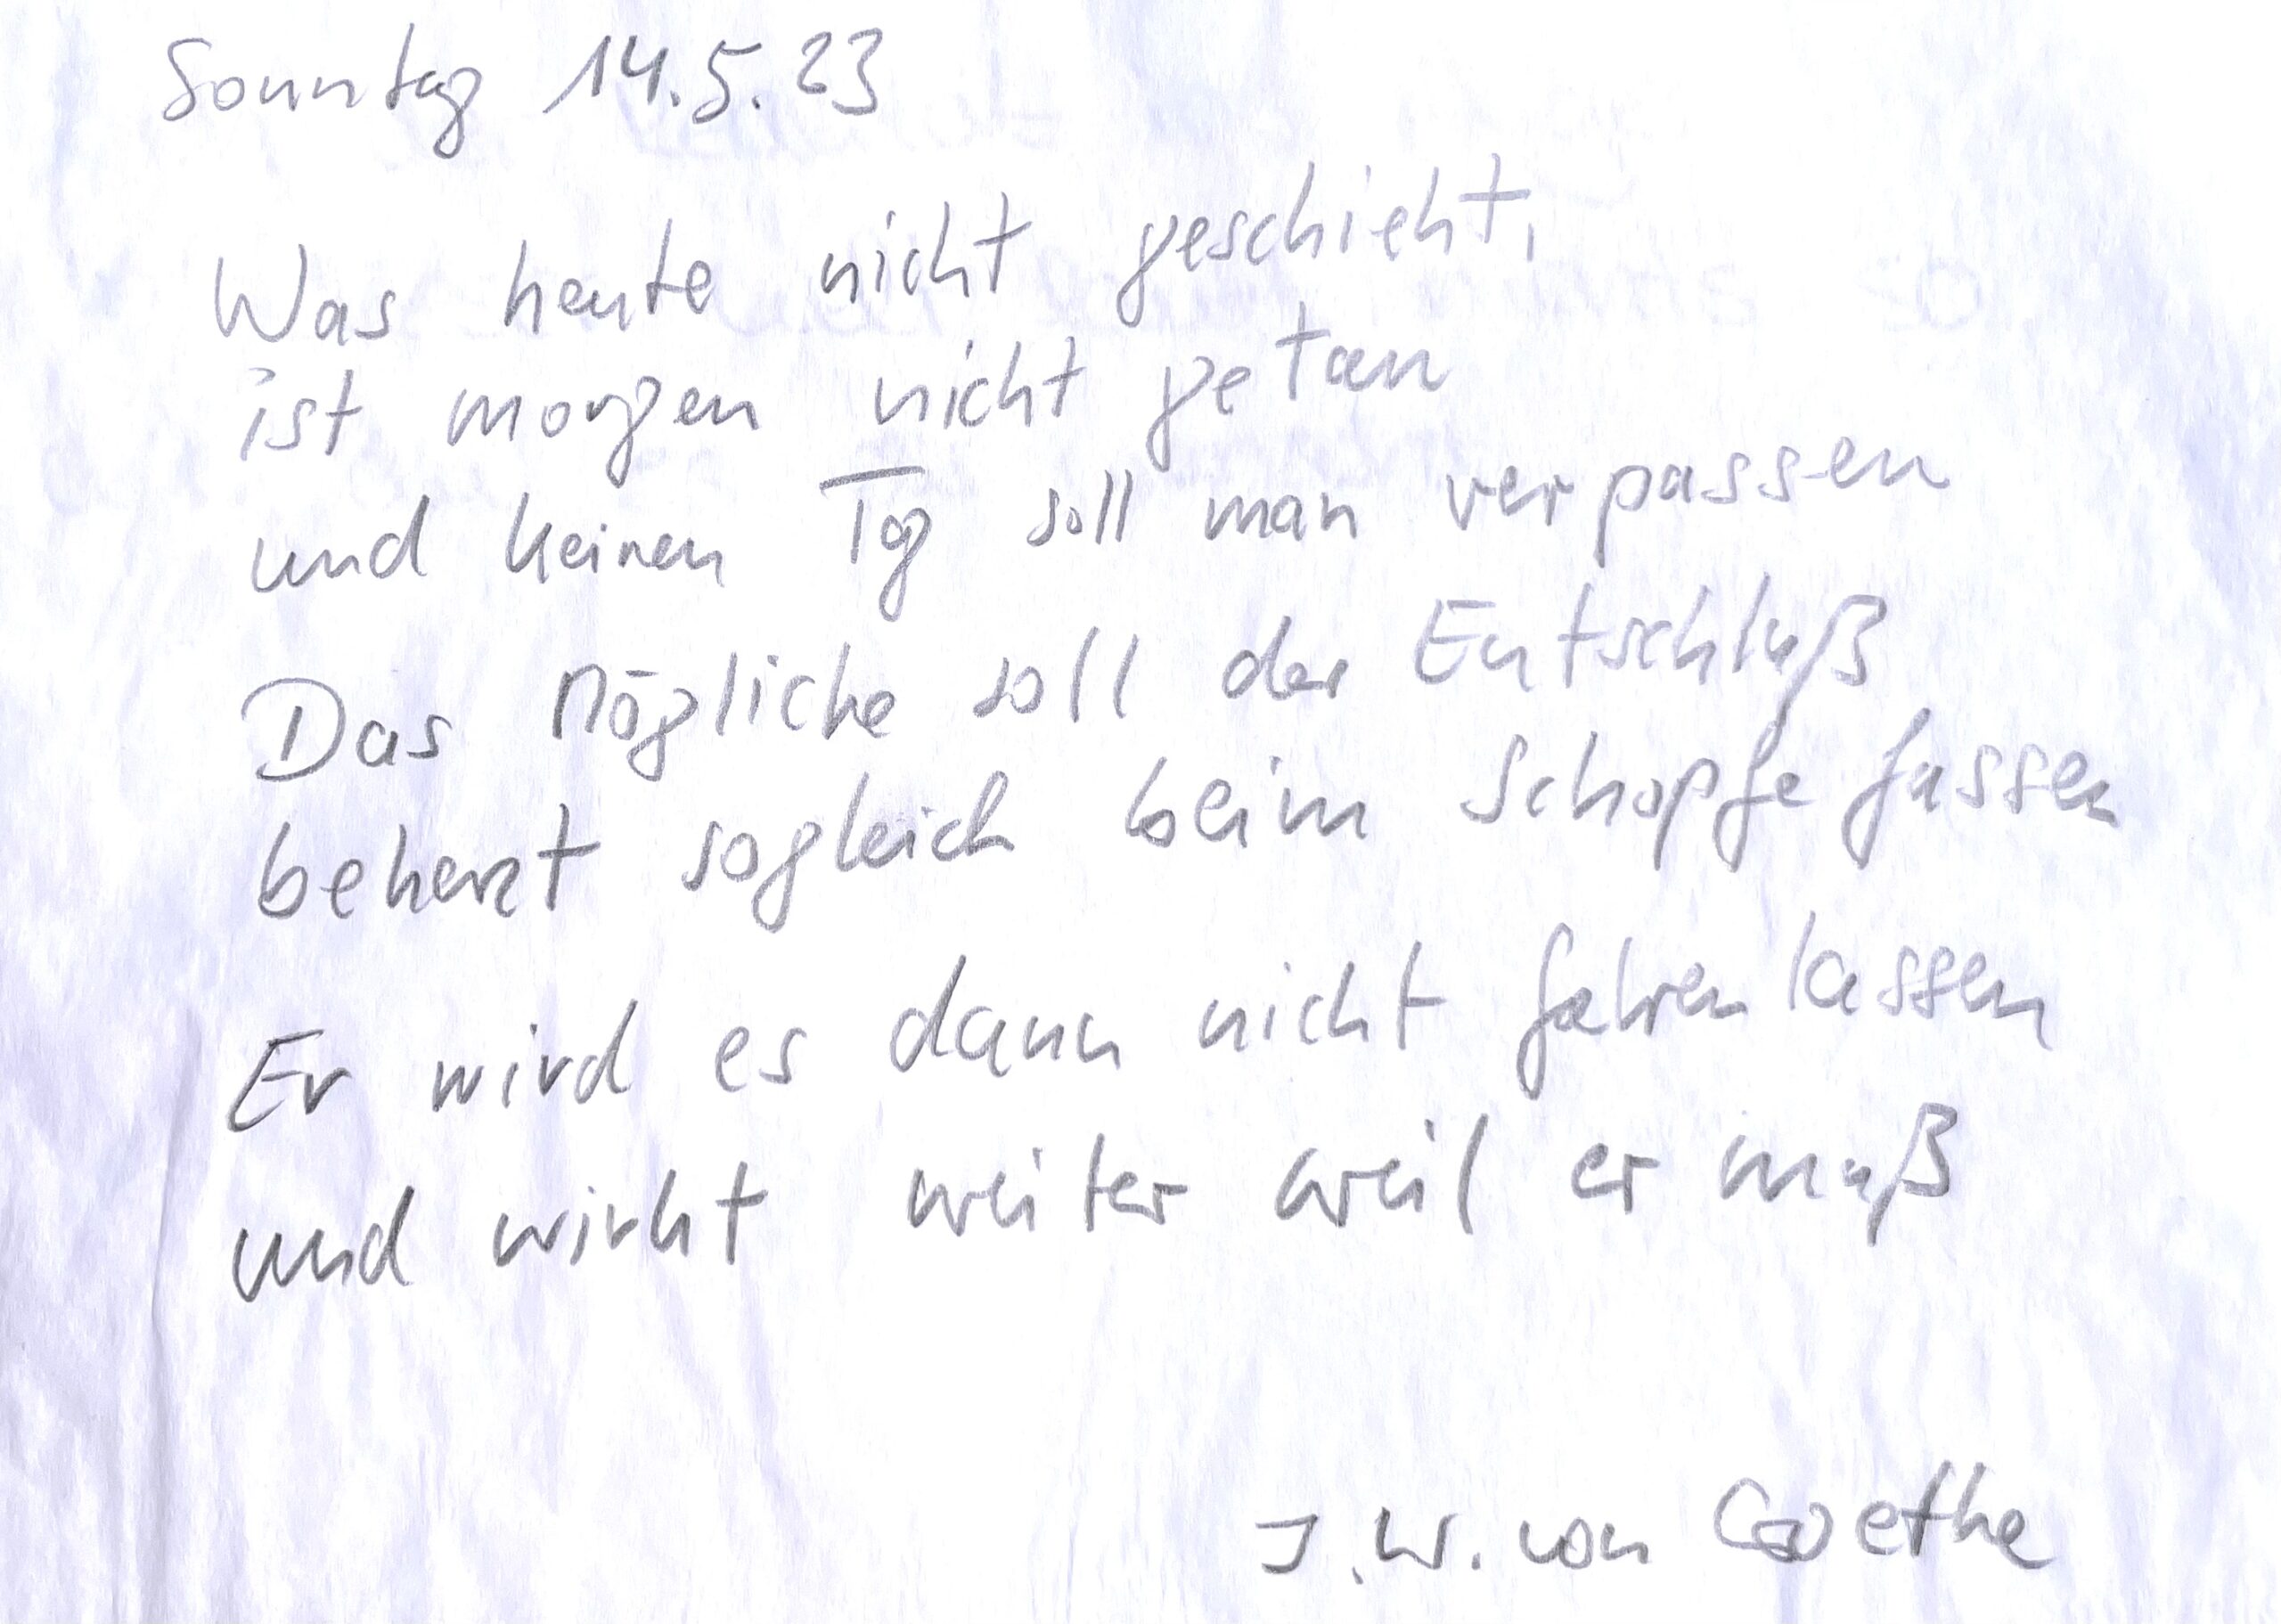 Sonntag 14.5.23
Was heute nicht geschieht,
ist morgen nicht getan
und keinen Tag soll man verpassen
Das Mögliche soll der Entschluß
beherzt sogleich beim Schopfe fassen
Er wird es dann nicht fahren lassen
und wirkt weiter weil er muß
J.W. von Goethe